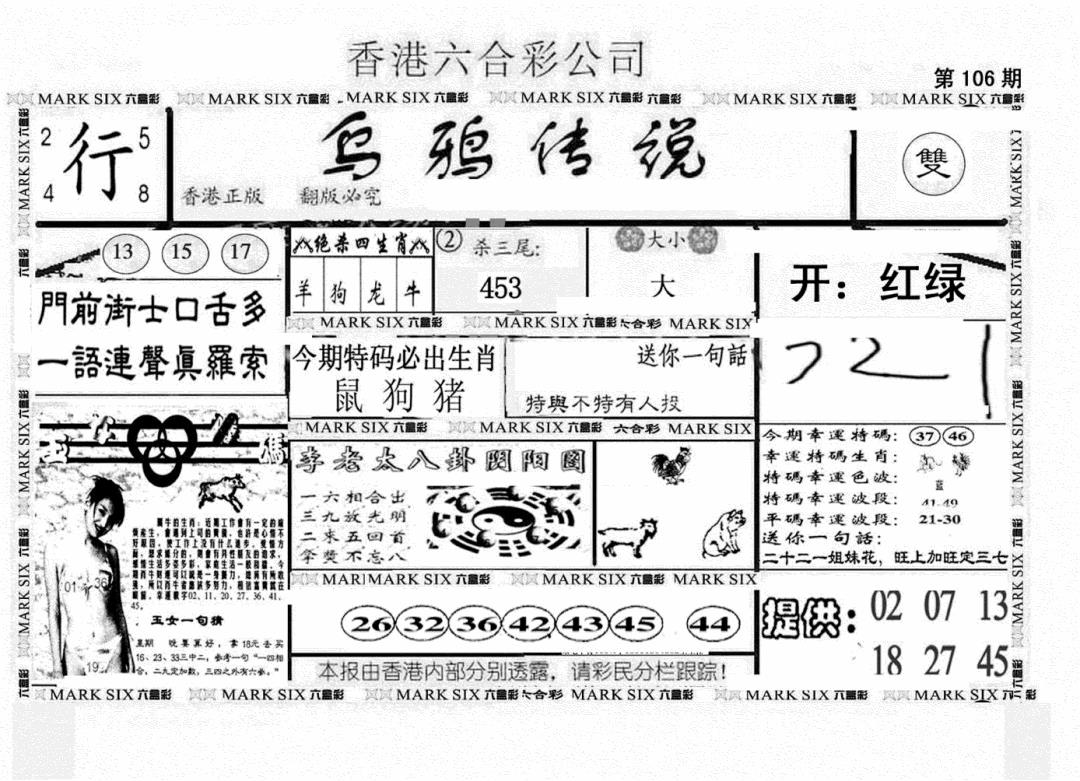 香港六合彩公司
第 106 期
MARK SIX 六合彩 MARK SIX 六合彩 MARK SIX 六合彩 MARK SIX 六合彩 六合彩 MARK SIX 六合彩 MARK SIX 六合彩
2 5
行
4 8
乌鸦传说
香港正版 翻版必究
雙
13 15 17
門前街士口舌多
一語連聲真羅索
绝杀四生肖
羊 狗 龙 牛
② 杀三尾:
453
大小
大
开：红绿
MARK SIX 六合彩 MARK SIX 六合彩 六合彩 MARK SIX
今期特码必出生肖
鼠 狗 猪
送你一句話
特與不特有人投
MARK SIX 六合彩 MARK SIX 六合彩 六合彩 MARK SIX
李老太八卦阴阳圖
一六相合出
三九放光明
二来五回首
今期幸運特碼: 37 46
幸運特碼生肖:
特碼幸運色波: 蓝
特碼幸運波段: 41-49
平碼幸運波段: 21-30
送你一句話:
二十二一姐妹花，旺上加旺定三七
01 36
19
玉女一句猜
MARK SIX 六合彩 MARK SIX 六合彩 MARK SIX
26 32 36 42 43 45 44
提供：
02 07 13
18 27 45
本报由香港内部分别透露，请彩民分栏跟踪!
MARK SIX 六合彩 MARK SIX 六合彩 MARK SIX 六合彩 六合彩 MARK SIX 六合彩 MARK SIX 六合彩 MARK SIX 六合彩